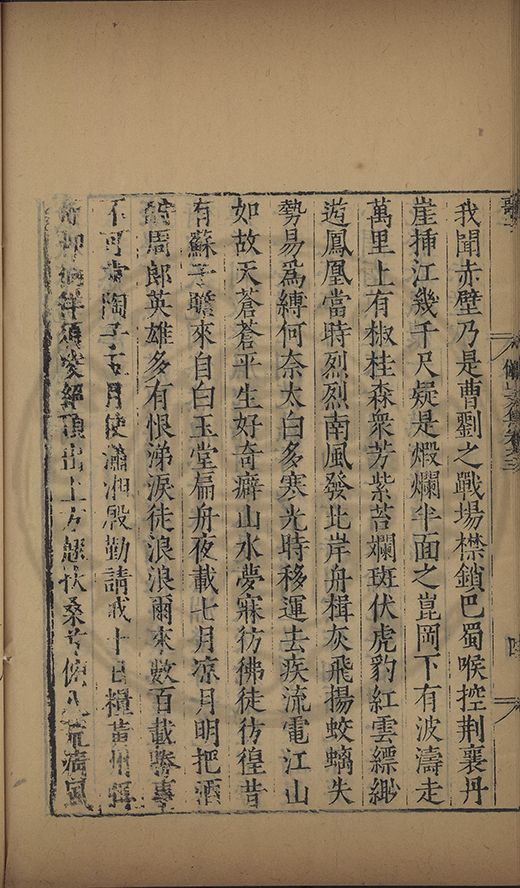 我聞赤壁乃是曹劉之戰場襟鎖巴蜀喉控荆襄丹
崖揷江幾千尺疑是煅爛半面之崑岡下有波濤走
萬里上有椒桂森衆芳紫苔斕斑伏虎豹紅雲縹緲
遊鳳凰當時烈烈南風發北岸舟楫灰飛揚蛟螭失
勢易爲縛何奈太白多寒光時移運去疾流電江山
如故天蒼蒼平生好奇癖山水夢寐彷彿徒彷徨昔
有蘇子瞻來自白玉堂扁舟夜載七月凉月明把酒
周郎英雄多有恨涕淚徒浪浪爾來數百載勝事
不可當陶子五月使瀟湘殷勤請戒十日糧黃州
絕頂出上方扶桑俯八荒